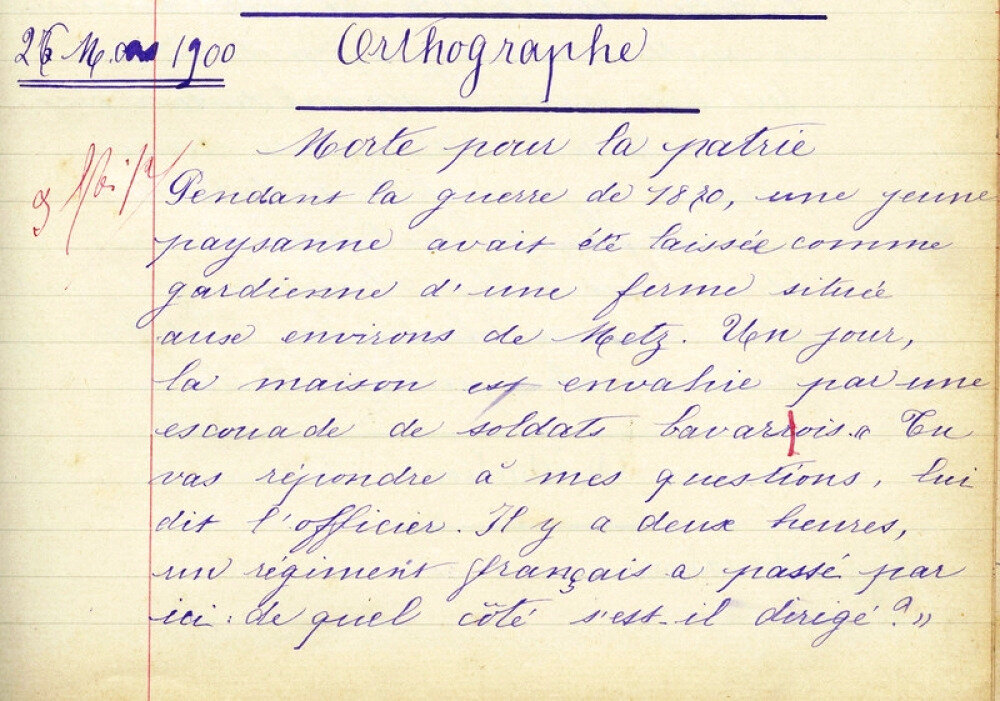 26 Mars 1900
Orthographe
Morte pour la patrie
Pendant la guerre de 1870, une jeune
paysanne avait été laissée comme
gardienne d'une ferme située
aux environs de Metz. Un jour,
la maison est envahie par une
escouade de soldats bavarrois. « Tu
vas répondre à mes questions, lui
dit l'officier. Il y a deux heures,
un régiment français a passé par
ici : de quel côté s'est-il dirigé ? »